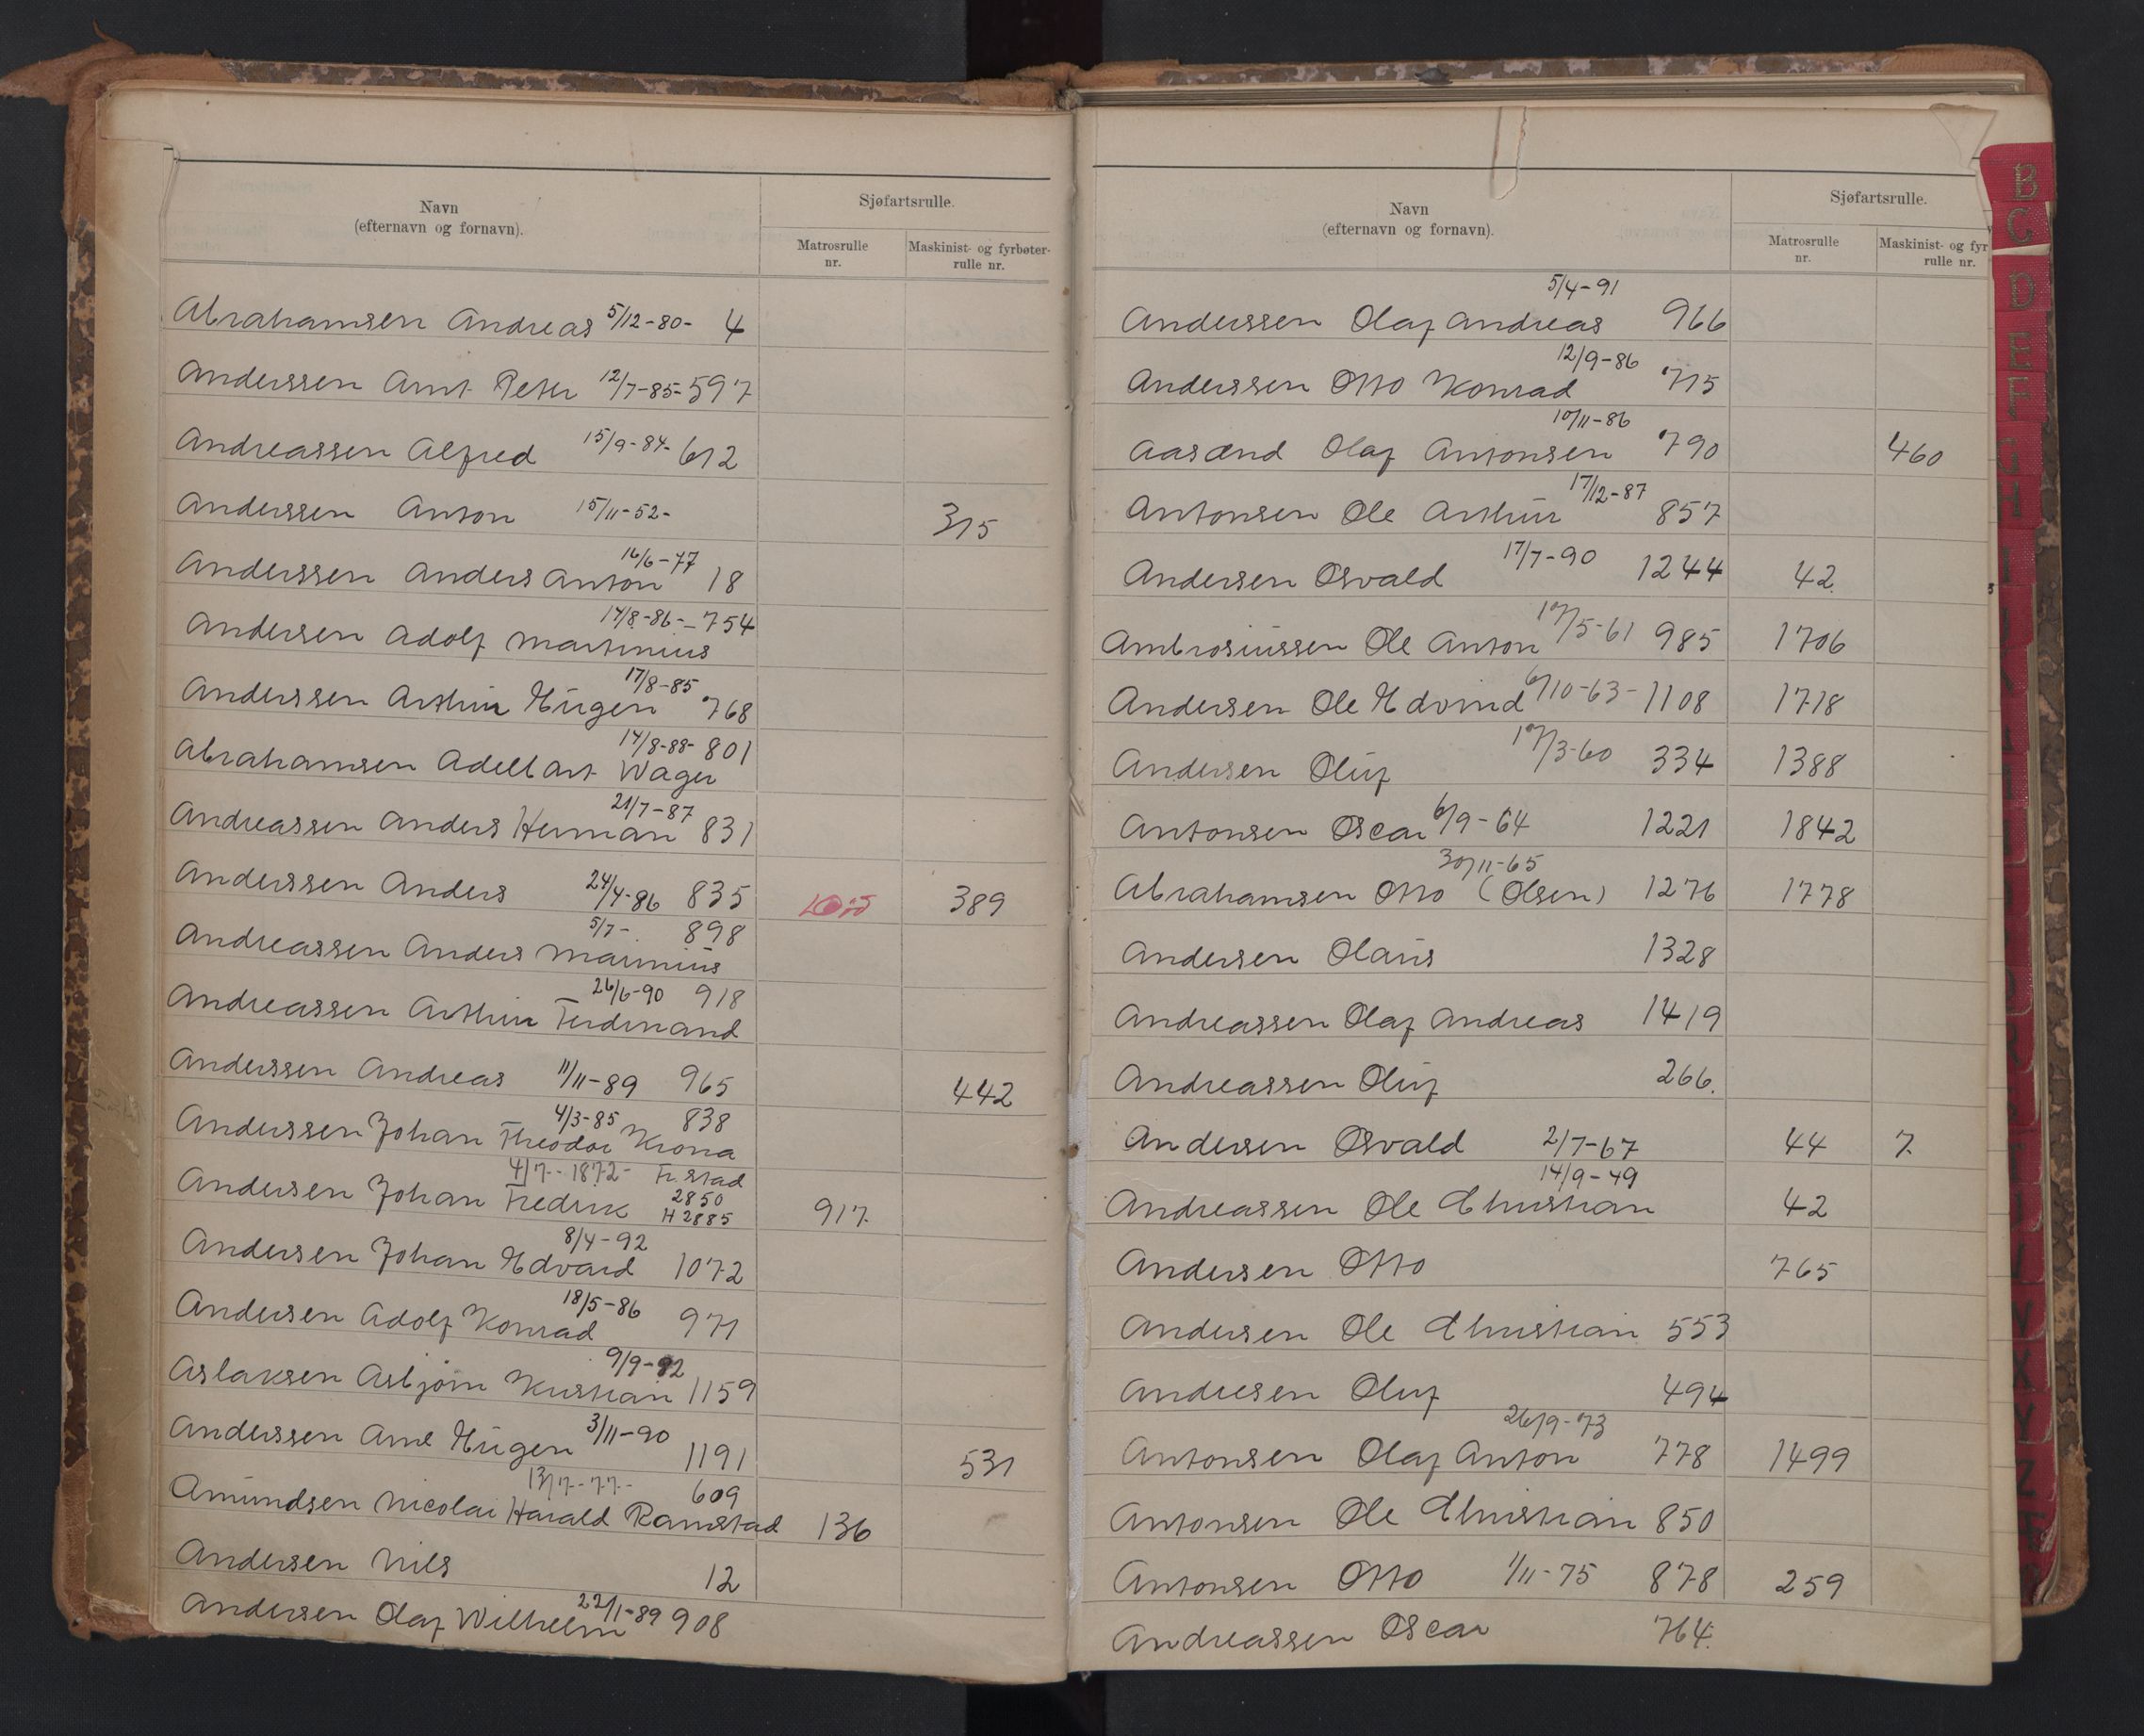 Navn
(efternavn og fornavn).
Sjøfartsrulle.
Matrosrulle
nr.
Maskinist- og fyrbøter-
rulle nr.
Abrahamsen Andreas 5/12-80- 4
Anderssen Arnt Peter 12/7-85- 597
Andreassen Alfred 15/9-84- 612
Anderssen Anton 15/11-52- 315
Anderssen Anders Anton 16/6-77 18
Andersen Adolf Martinius 14/8-86- 754
Anderssen Arthur Eugen 17/8-85 768
Abrahamsen Adelbart Wager 14/8-88- 801
Andreassen Anders Herman 21/7-87 831
Anderssen Anders 24/4-86 835 389
Andreassen Anders Marinius 5/7- 898
Andreassen Arthur Ferdinand 26/6-90 918
Anderssen Andreas 11/11-89 965 442
Anderssen Johan Theodor Krona 4/3-85 838
Andersen Johan Fredrik 4/7-1872- Fr.stad 2850 H 2885 917
Andersen Johan Edvard 8/4-92 1072
Andersen Adolf Konrad 18/5-86 971
Aslaksen Asbjørn Kristian 9/9-92 1159
Anderssen Arne Eugen 3/11-90 1191 531
Amundsen Nicolai Harald Ramstad 13/7-77- 609 136
Andersen Nils 12
Andersen Olaf Wilhelm 22/1-89 908
Navn
(efternavn og fornavn).
Sjøfartsrulle.
Matrosrulle
nr.
Maskinist- og fyr
rulle nr.
Anderssen Olaf Andreas 5/4-91 966
Anderssen Otto Konrad 12/9-86 715
Aasænd Olaf Antonsen 10/11-86 790 460
Antonsen Ole Arthur 17/12-87 857
Andersen Osvald 17/7-90 1244 42
Ambrosiussen Ole Anton 10/5-61 985 1706
Andersen Ole Edvind 6/10-63- 1108 1718
Andersen Oluf 10/3-60 334 1388
Antonsen Oscar 6/9-64 1221 1842
Abrahamsen Otto (Olsen) 30/11-65 1276 1778
Andersen Olaus 1328
Andreassen Olaf Andreas 1419
Andreassen Oluf 266.
Andersen Osvald 2/7-67 44 7.
Andreassen Ole Christian 14/9-49 42
Andersen Otto 765
Andersen Ole Christian 553
Andresen Oluf 494
Antonsen Olaf Anton 26/9-73 778 1499
Antonsen Ole Christian 850
Antonsen Otto 1/11-75 878 259
Andreassen Oscar 764.
B
C
D
E
F
V
X
Y
Z